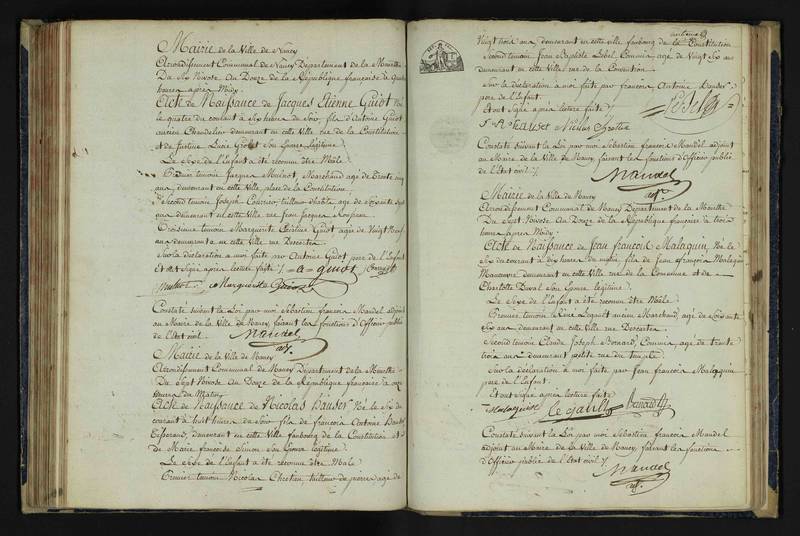 Mairie de la Ville de Nancy
Arrondissement Communal de Nancy Département de la Meurthe
Du Six Nivose An Douze de la République française à quatre
heures après Midy.
Acte de Naissance de Jacques Etienne Guiot Né
le quatre du courant à Six heures du Soir, fils d'Antoine Guiot
ancien Chandelier demeurant en cette Ville rue de la Constitution
et de Justine Lucie son Epouse légitime.
Le Sexe de l'Enfant a été reconnu être Mâle.
Premier temoin Jacques Mulnot, Marchand agé de Trente
ans, demeurant en cette Ville, place de la Constitution
Second temoin Joseph tailleur d'habits agé de soixante sept
ans demeurant en cette Ville rue Jean Jacques Rousseau
Troisieme temoin Marguerite Guiot agée de Vingt Neuf
ans demeurante en cette Ville rue Descartes
Sur la déclaration à moi faite par Antoine Guiot pere de l'Enfant
Et ont Signé après lecture faite /. a guiot
Marguerite Guiot
Constaté suivant la Loi par moi Sébastien françois Mandel adjoint
au Maire de la Ville de Nancy faisant les fonctions d'Officier public
de l'Etat civil /. Mandel
adj.
Mairie de la Ville de Nancy
Arrondissement Communal de Nancy Département de la Meurthe
Du Sept Nivose An Douze de la République française à onze
heures du Matin,
Acte de Naissance de Nicolas Hauser Né le Six du
courant à huit heures du Soir fils de francois Antoine Hauser
Tisserand, demeurant en cette Ville faubourg de la Constitution et
de Marie francoise Simon son Epouse légitime.
Le Sexe de l'Enfant a été reconnu être Mâle
Premier temoin Nicolas Chretien tailleur de pierres agé de
Vingt trois ans, demeurant en cette ville faubourg de la Constitution
Second temoin Jean Baptiste Lebel Commis agé de Vingt Six ans
demeurant en cette Ville rue de la Convention.
Sur la déclaration à moi faite par francois Antoine Hauser
pere de l'Enfant.
Et ont Signé après lecture faite Lebel
f. A hauser Nicolas Chretien
Constaté Suivant la Loi par moi Sébastien francois Mandel adjoint
au Maire de la Ville de Nancy, faisant les fonctions d'Officier public
de l'Etat civil /.
Mandel
adj.
Mairie de la Ville de Nancy
Arrondissement Communal de Nancy Département de la Meurthe
Du Sept Nivose An Douze de la République française à trois
heures après Midy.
Acte de Naissance de Jean francois Malaquin, Né le
Six du courant à dix heures du matin, fils de Jean françois Malaquin
Manoeuvre demeurant en cette Ville rue de la Commune et de
Charlotte Duval son Epouse légitime.
Le Sexe de l'Enfant a été reconnu être Mâle.
Premier temoin ancien Marchand, agé de Soixante
Six ans demeurant en cette Ville rue Descartes.
Second temoin Claude Joseph Bernard, Commis agé de trente
trois ans demeurant petite rue du temple.
Sur la déclaration à moi faite par Jean francois Malaquin
pere de l'Enfant.
Et ont signé après lecture faite
Bernard
Constaté Suivant la Loi par moi Sébastien francois Mandel
adjoint au Maire de la Ville de Nancy, faisant les fonctions
d'Officier public de l'Etat civil /.
Mandel
adj.